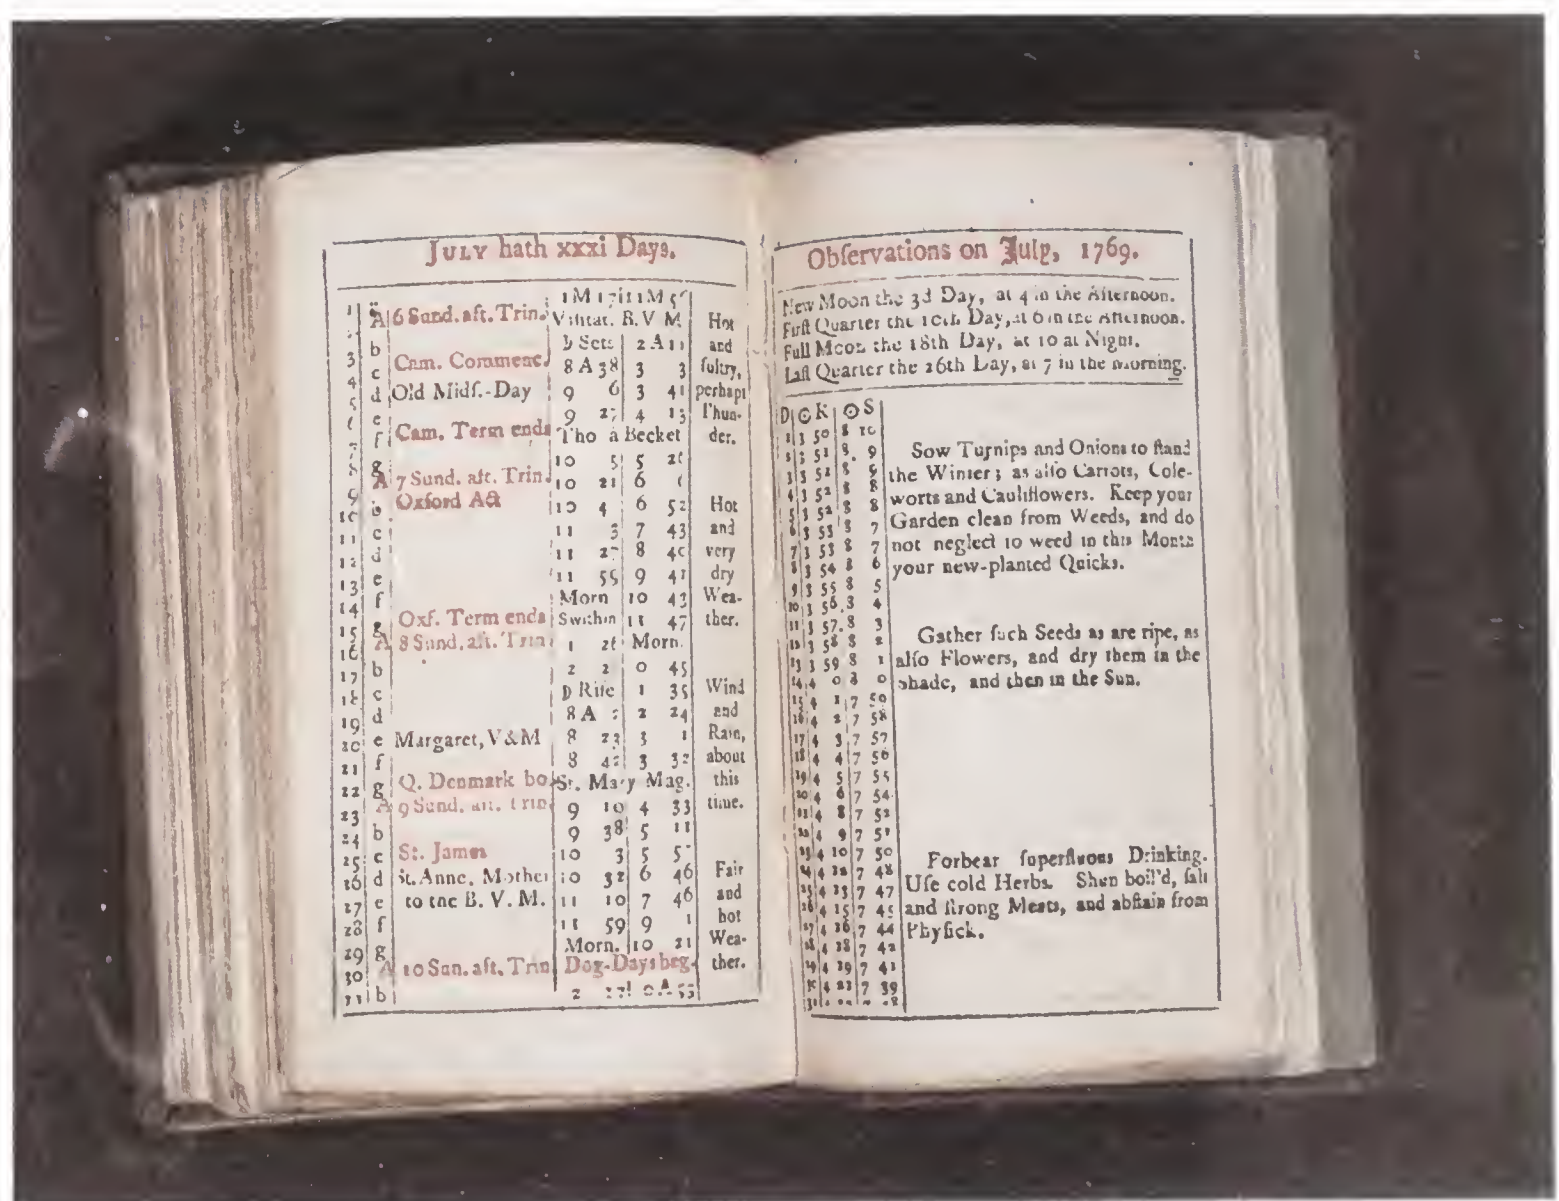 JULY hath xxxi Days.
1 1M 17 11M 56
A 6 Sund. aft. Trin. Viſitat. B. V M. Hot
3 b ☽ Sets 2 A 11 and
4 c Cam. Commenc. 8 A 38 3 3 ſultry,
5 d Old Midſ.-Day 9 6 3 41 perhaps
e 9 27 4 13 Thun-
f Cam. Term ends Tho a Becket der.
g 10 5 5 26
9 A 7 Sund. aft. Trin. 10 21 6
10 b Oxford Act 10 4 6 52 Hot
11 c 11 3 7 43 and
12 d 11 27 8 40 very
13 e 11 55 9 41 dry
14 f Morn 10 43 Wea-
15 g Oxf. Term ends Swithin 11 47 ther.
16 A 8 Sund. aft. Trin 1 26 Morn.
17 b 2 2 0 45
18 c ☽ Riſe 1 35 Wind
19 d 8 A 2 24 and
20 e Margaret, V & M 8 23 3 1 Rain,
21 f 8 42 3 32 about
22 g Q. Denmark bo. St. Mary Mag. this
23 A 9 Sund. aft. Trin. 9 10 4 33 time.
24 b 9 38 5 11
25 c St. James 10 3 5 5
26 d St. Anne, Mother 10 32 6 46 Fair
27 e to the B. V. M. 11 10 7 46 and
28 f 11 59 9 1 hot
29 g Morn. 10 21 Wea-
30 A 10 Sun. aft. Trin Dog-Days beg. ther.
31 b 2 27 0 A 53
Obſervations on July, 1769.
New Moon the 3d Day, at 4 in the Afternoon.
Firſt Quarter the 10th Day, at 6 in the Afternoon.
Full Moon the 18th Day, at 10 at Night.
Laſt Quarter the 26th Day, at 7 in the morning.
D ☉ R ☉ S
1 3 50 8 10
3 51 8 9
3 3 51 8 9
4 3 52 8 8
5 3 52 8 8
6 3 53 8 7
7 3 53 8 7
8 3 54 8 6
9 3 55 8 5
10 3 56 8 4
11 3 57 8 3
12 3 58 8 2
13 3 59 8 1
14 4 0 8 0
15 4 1 7 59
16 4 2 7 58
17 4 3 7 57
18 4 4 7 56
19 4 5 7 55
20 4 6 7 54
21 4 8 7 52
22 4 9 7 51
23 4 10 7 50
24 4 12 7 48
25 4 13 7 47
26 4 15 7 45
27 4 16 7 44
28 4 18 7 42
29 4 19 7 41
30 4 21 7 39
31
Sow Turnips and Onions to ſtand
the Winter; as alſo Carrots, Cole-
worts and Cauliflowers. Keep your
Garden clean from Weeds, and do
not neglect to weed in this Month
your new-planted Quicks.
Gather ſuch Seeds as are ripe, as
alſo Flowers, and dry them in the
Shade, and then in the Sun.
Forbear ſuperfluous Drinking.
Uſe cold Herbs. Shun boil'd, ſalt
and ſtrong Meats, and abſtain from
Phyſick.